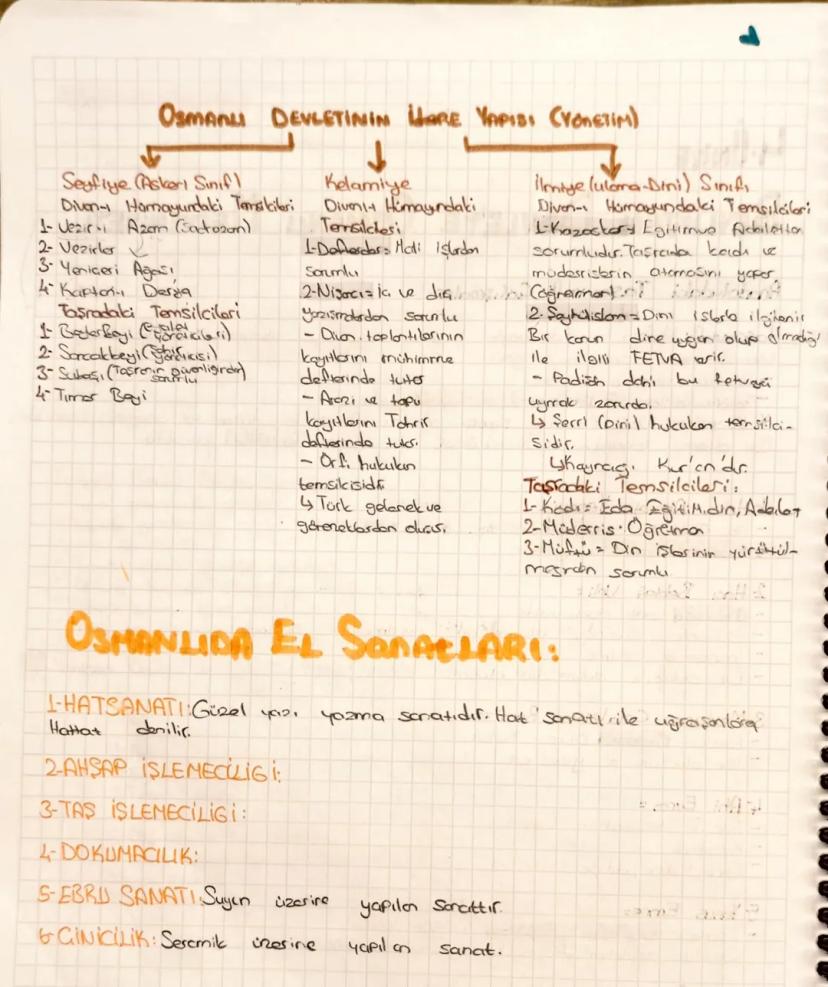 OSMANLI DEVLETİNİN İDARE YAPISI (YÖNETİM)
Seyfiye (Askeri Sınıf)
Divan-ı Hümayundaki Temsilcileri
1- Vezir-i Azam (Sadrazam)
2- Vezirler
3- Yeniçeri Ağası
4- Kaptan-ı Derya
Taşradaki Temsilcileri
1- Beylerbeyi (Eyalet yöneticileri)
2- Sancakbeyi (Şehir yöneticisi)
3- Subaşı (Taşranın güvenliğinden sorumlu
4- Tımar Beyi
Kalemiye
Divan-ı Hümayundaki
Temsilcileri
1- Defterdar = Mali işlerden
sorumlu
2- Nişancı = İç ve dış
yazışmalardan sorumlu
- Divan toplantılarının
kayıtlarını mühimme
defterinde tutar
- Arazi ve tapu
kayıtlarını Tahrir
defterinde tutar.
- Örfi hukukun
temsilcisidir
↳ Türk gelenek ve
göreneklerden oluşur.
İlmiye (ulema-Dini) Sınıfı
Divan-ı Hümayundaki Temsilcileri
1- Kazasker = Eğitim ve Adaletten
sorumludur. Taşrada kadı ve
müderrislerin atamasını yapar
(öğretmen)
2- Şeyhülislam = Dini işlerle ilgilenir
Bir kanun dine uygun olup olmadığı
ile ilgili FETVA verir.
- Padişah dahi bu fetvaya
uymak zorunda.
↳ Şerri (Dini) hukukun temsilci-
sidir.
↳ Kaynağı Kur'an'dır.
Taşradaki Temsilcileri:
1- Kadı = Eğitim, din, Adalet
2- Müderris - Öğretmen
3- Müftü = Din işlerinin yürütül-
mesinden sorumlu
OSMANLIDA EL SANATLARI:
1-HAT SANATI: Güzel yazı yazma sanatıdır. Hat sanatı ile uğraşanlara
Hattat denilir.
2-AHŞAP İŞLEMECİLİĞİ:
3-TAŞ İŞLEMECİLİĞİ:
4-DOKUMACILIK:
5-EBRU SANATI: Suyun üzerine yapılan sanattır.
6-ÇİNİCİLİK: Seramik üzerine yapılan sanat.